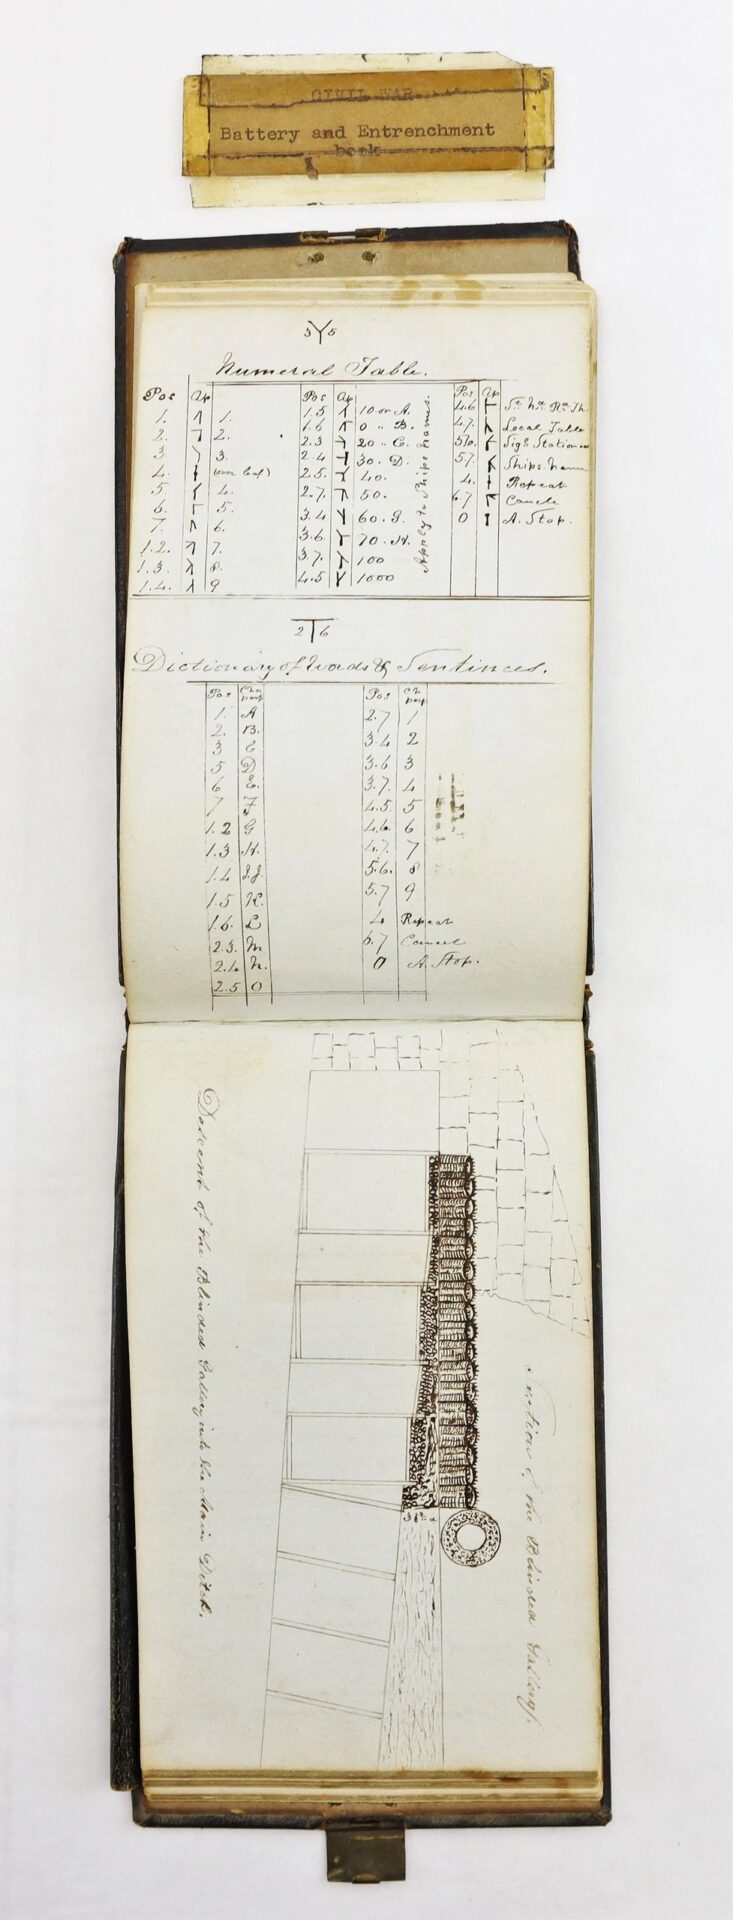 CIVIL WAR
Battery and Entrenchment
book
3 Y 5
Numeral Table.
Pos Ap Pos Ap Pos Ap
1. 1. 1.5 10 or A. 4.6
2. 2. 1.6 0 " B. 4.7. Local Table
3. 3. 2.3 20 " C. 56. Sigl Stations
4. (over leaf) 2.4 30. D. 57. Ships name
5. 4. 2.5. 40. 4. Repeat
6. 5. 2.7. 50. 67 Cancle
7. 6. 3.4 60. G. 0 A. Stop.
1.2. 7. 3.6. 70. H.
1.3. 8. 3.7. 100
1.4. 9 4.5 1000
Apply to Ships names.
2 T 6
Dictionary of Words & Sentinces.
Pos Pos
1. A 2.7 1
2. B. 3.4 2
3 C 3.6 3
5 D 3.7. 4
6 E. 4.5. 5
7 F 4.6. 6
1.2 G 4.7. 7
1.3 H. 5.6. 8
1.4 I.J. 5.7 9
1.5 K. 4 Repeat
1.6. L 6.7 Cancel
2.3. M 0 A. Stop.
2.4. N.
2.5 O
Section of the Blinded Gallery.
Descent of the Blinded Gallery into the Main Ditch.